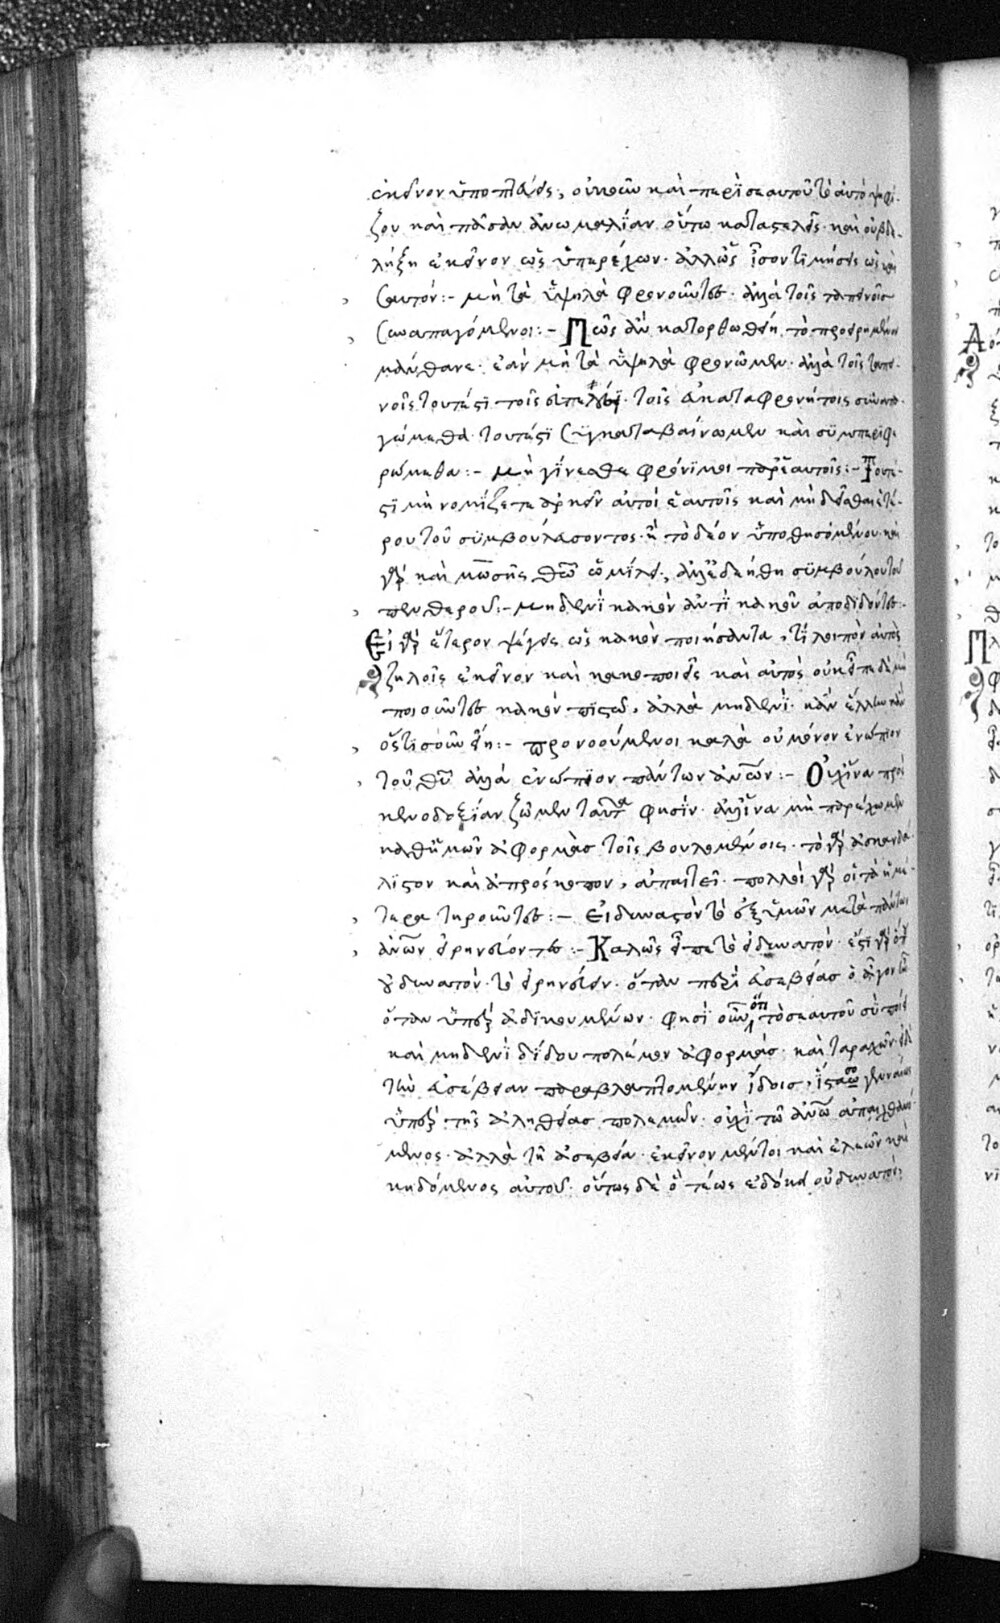 ἐκεῖνον ὑποπτεύεις, οὐκοῦν καὶ περὶ σεαυτοῦ τὸ αὐτὸ ψηφί-
ζου καὶ πᾶσαν ἀνωμαλίαν οὕτω καταστελεῖς· καὶ οὐ βλ
λήξη ἐκεῖνον ὡς ὑπερέχων· ἄλλως ἴσον τιμήσεις ὡς καὶ
σαυτόν:- μὴ τὰ ὑψηλὰ φρονοῦντες· ἀλλὰ τοῖς ταπεινοῖς
συναπαγόμενοι:- Πῶς ἂν κατορθωθείη τὸ προειρημένον
μάνθανε· ἐὰν μὴ τὰ ὑψηλὰ φρονῶμεν· ἀλλὰ τοῖς ταπει-
νοῖς τουτέστι τοῖς εὐτελέσι· τοῖς εὐκαταφρονήτοις συναπα-
γώμεθα· τουτέστι συγκαταβαίνωμεν καὶ συμπεριφε
ρώμεθα:- μὴ γίνεσθε φρόνιμοι παρ' ἑαυτοῖς:- Τουτέ-
στι μὴ νομίζετε ἀρκεῖν αὐτοὶ ἑαυτοῖς καὶ μὴ δεῖσθαι ἑτέ-
ρου τοῦ συμβουλεύσοντος ἢ τὸ δέον ὑποθησομένου· καὶ
γὰρ καὶ μωσῆς θεῷ ὡμίλει, ἀλλ' ἐδεήθη συμβούλου τοῦ
πενθεροῦ:- μηδενὶ κακὸν ἀντὶ κακοῦ ἀποδιδόντες:-
Εἰ γὰρ ἕτερον ψέγεις ὡς κακὸν ποιήσαντα, τί λοιπὸν αὐτὸς
ζηλοῖς ἐκεῖνον καὶ κακοποιεῖς καὶ αὐτὸς οὐκ εἶπε δὲ μὴ
ποιοῦντες κακὸν πιστῷ, ἀλλὰ μηδενί· κἂν ἕλλην κἂν
ὅστισοῦν εἴη:- προνοούμενοι καλὰ οὐ μόνον ἐνώπιον
τοῦ θυ ἀλλὰ ἐνώπιον πάντων ἀνων:- Οὐχ ἵνα πρὸς
κενοδοξίαν ζῶμεν ταῦτα φησίν· ἀλλ' ἵνα μὴ παρέχωμεν
καθ' ἡμῶν ἀφορμὰς τοῖς βουλομένοις· τὸ γὰρ ἀσκανδά-
λιστον καὶ ἀπρόσκοπον, ἀπαιτεῖ· πολλοὶ γὰρ οἱ τὰ ἡμέ-
τερα τηροῦντες:- Εἰ δυνατὸν τὸ ἐξ ὑμῶν μετὰ πάντων
ἀνων εἰρηνεύοντες:- Καλῶς εἶπε τὸ εἰ δυνατόν· ἔστι γὰρ ὅτε
οὐ δυνατὸν τὸ εἰρηνεύειν· ὅταν περὶ εὐσεβείας ὁ ἀγὼν
ὅταν ὑπὲρ ἀδικουμένων· φησὶ οὖν ὅτι τὸ σεαυτοῦ σὺ ποίει
καὶ μηδενὶ δίδου πολέμων ἀφορμὰς· καὶ ταραχῶν· εἰ δὲ
τὴν εὐσέβειαν παραβλαπτομένην ἴδοις, ἵστασο γενναίως
ὑπὲρ τῆς ἀληθείας πολεμῶν· οὐχὶ τῷ ἀνω ἀπεχθανό-
μενος· ἀλλὰ τῇ ἀσεβείᾳ· ἐκεῖνον μέντοι καὶ ἐλεῶν καὶ
κηδόμενος αὐτοῦ· οὕτως δὲ ὃ τέως ἐδόκει οὐ δυνατόν,